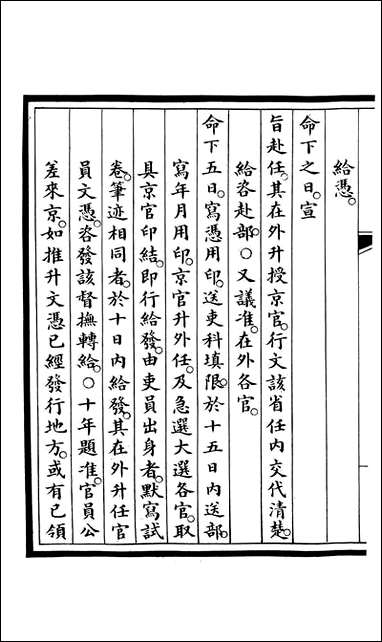 給憑。
命下之日。宣
旨赴任。其在外升授京官。行文該省任內交代清楚。
給咨赴部。○又議准。在外各官。
命下五日。寫憑用印。送吏科填限。於十五日內送部。
寫年月用印。京官升外任。及急選大選各官。取
具京官印結。即行給發。由吏員出身者。默寫試
卷。筆迹相同者。於十日內給發。其在外升任官
員文憑。咨發該督撫轉給。○十年題准。官員公
差來京。如推升文憑已經發行地方。或有已領